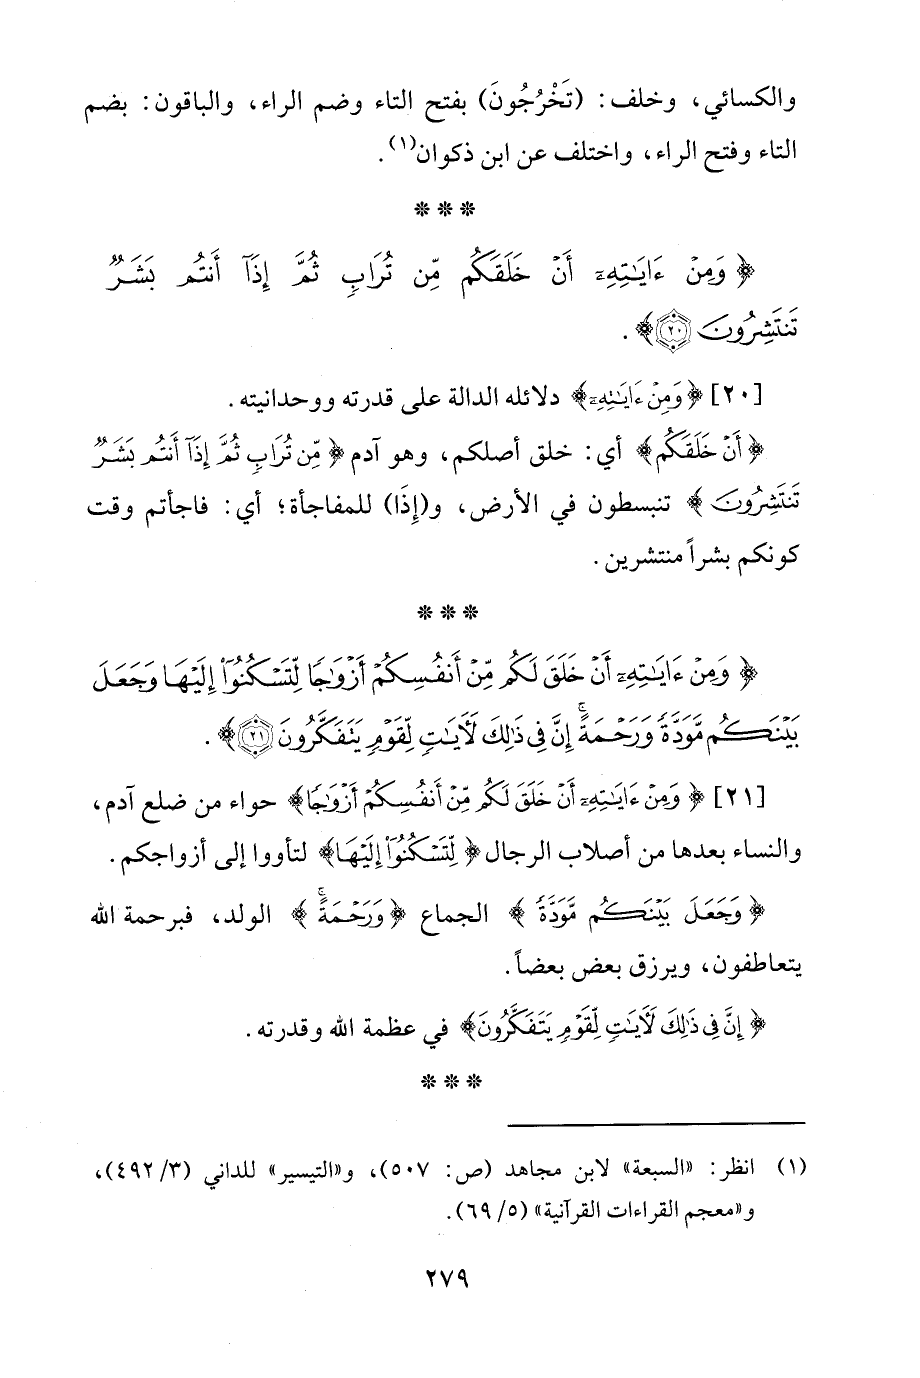 والكسائي، وخلف: (تَخْرُجُونَ) بفتح التاء وضم الراء، والباقون: بضم
التاء وفتح الراء، واختلف عن ابن ذكوان(١).
* * *
﴿ وَمِنْ ءَايَـٰتِهِۦٓ أَنْ خَلَقَكُم مِّن تُرَابٍ ثُمَّ إِذَآ أَنتُم بَشَرٌ
تَنتَشِرُونَ ﴿٢٠﴾ ﴾ .
[٢٠] ﴿ وَمِنْ ءَايَـٰتِهِۦٓ ﴾ دلائله الدالة على قدرته ووحدانيته .
﴿ أَنْ خَلَقَكُم ﴾ أي: خلق أصلكم، وهو آدم ﴿ مِّن تُرَابٍ ثُمَّ إِذَآ أَنتُم بَشَرٌ
تَنتَشِرُونَ ﴾ تنبسطون في الأرض، و(إِذَا) للمفاجأة؛ أي: فاجأتم وقت
كونكم بشراً منتشرين .
* * *
﴿ وَمِنْ ءَايَـٰتِهِۦٓ أَنْ خَلَقَ لَكُم مِّنْ أَنفُسِكُمْ أَزْوَٰجًا لِّتَسْكُنُوٓا۟ إِلَيْهَا وَجَعَلَ
بَيْنَكُم مَّوَدَّةً وَرَحْمَةً ۚ إِنَّ فِى ذَٰلِكَ لَـَٔايَـٰتٍ لِّقَوْمٍ يَتَفَكَّرُونَ ﴿٢١﴾ ﴾ .
[٢١] ﴿ وَمِنْ ءَايَـٰتِهِۦٓ أَنْ خَلَقَ لَكُم مِّنْ أَنفُسِكُمْ أَزْوَٰجًا ﴾ حواء من ضلع آدم،
والنساء بعدها من أصلاب الرجال ﴿ لِّتَسْكُنُوٓا۟ إِلَيْهَا ﴾ لتأووا إلى أزواجكم .
﴿ وَجَعَلَ بَيْنَكُم مَّوَدَّةً ﴾ الجماع ﴿ وَرَحْمَةً ۚ ﴾ الولد، فبرحمة الله
يتعاطفون، ويرزق بعض بعضاً .
﴿ إِنَّ فِى ذَٰلِكَ لَـَٔايَـٰتٍ لِّقَوْمٍ يَتَفَكَّرُونَ ﴾ في عظمة الله وقدرته .
* * *
(١) انظر: «السبعة» لابن مجاهد (ص: ٥٠٧)، و«التيسير» للداني (٣/ ٤٩٢)،
و«معجم القراءات القرآنية» (٥/ ٦٩).
٢٧٩